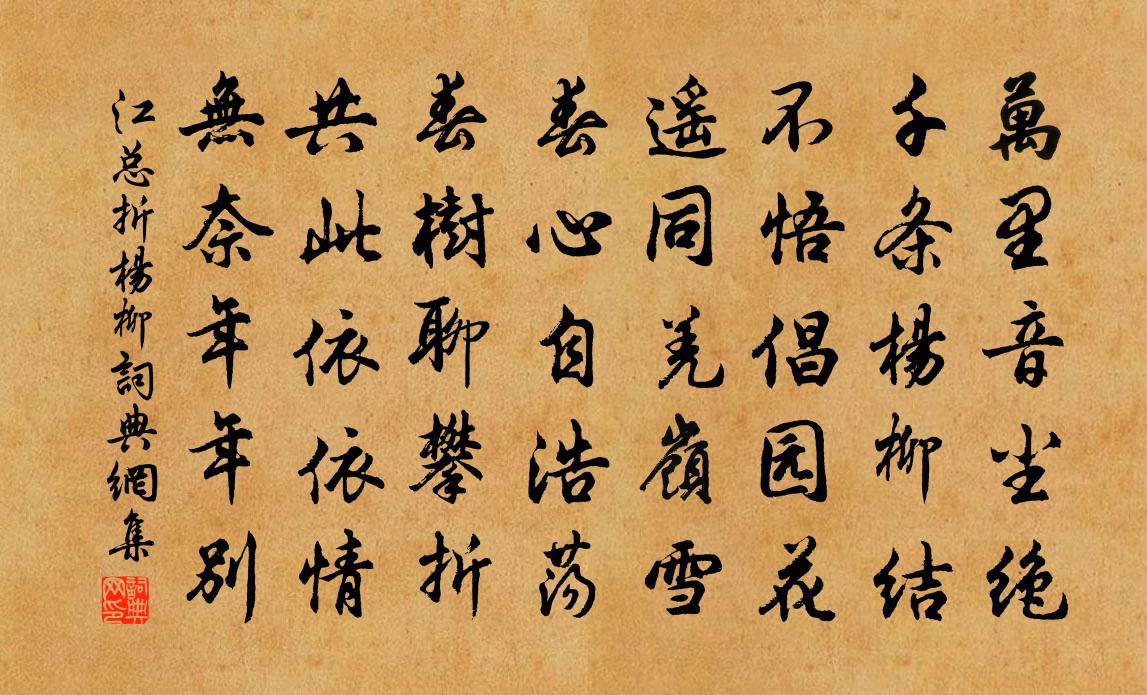 萬里音尘绝
千条楊柳结
不悟倡园花
遥同羌嶺雪
春心自浩荡
春樹聊攀折
共此依依情
無奈年年别
江总折楊柳詞典網集
詞典网印